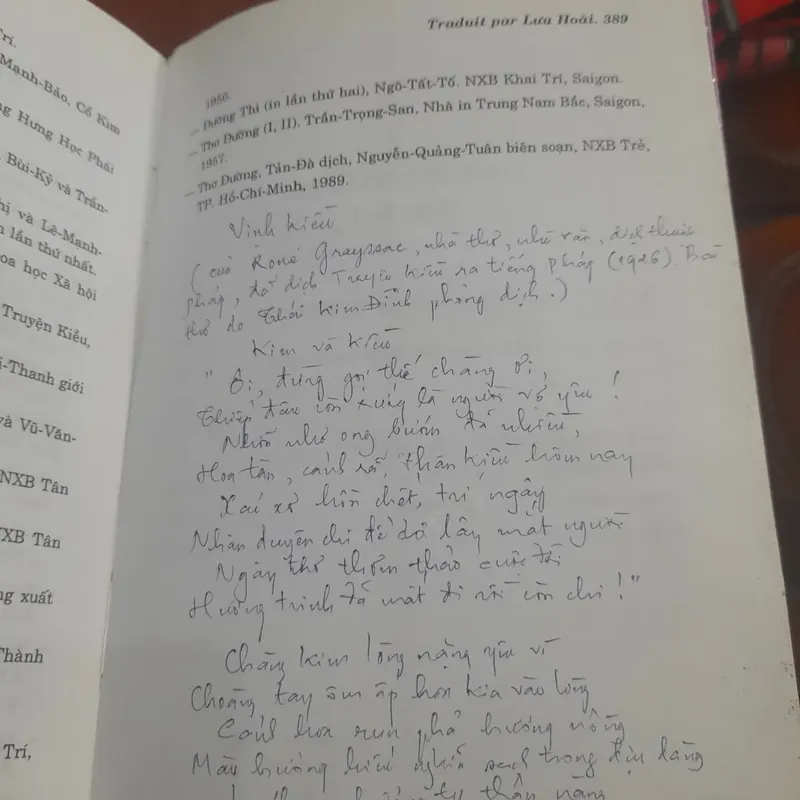 Trí.
Mạnh-Bảo, Cổ Kim
ng Hưng Học Phái
Bùi-Kỷ và Trần-
hị và Lê-Mạnh-
n lần thứ nhất.
oa học Xã hội
Truyện Kiều,
i-Thanh giới
và Vũ-Văn-
NXB Tân
XB Tân
ng xuất
Thành
Trí,
Traduit par Lưu Hoài. 389
1950.
— Đường Thi (in lần thứ hai), Ngô-Tất-Tố. NXB Khai Trí, Saigon.
— Thơ Đường (I, II). Trần-Trọng-San, Nhà in Trung Nam Bắc, Saigon,
1957.
— Thơ Đường, Tản-Đà dịch, Nguyễn-Quảng-Tuân biên soạn, NXB Trẻ,
TP. Hồ-Chí-Minh, 1989.
Vịnh Kiều
(của René Crayssac, nhà thơ, nhà văn, dịch thuật
pháp, đã dịch Truyện Kiều ra tiếng pháp (1926). Bài
thơ do Thái Kim Đỉnh phỏng dịch.)
Kim và Kiều
" Ôi, đừng gọi thế chàng ơi,
Thiếp đâu còn xứng là người vợ yêu !
Nhơ ong bướm đã nhiều,
Hoa tàn, canh rã, thân Kiều hôm nay
Xác xơ hồn chết, trí ngây
Nhân duyên chi để dơ lây mát người
Ngây thơ thơm thảo cuộc đời
Hương trinh đã mất đi rồi còn chi !"
Chàng Kim lòng nặng yêu vì
Choàng tay ôm ấp hoa kia vào lòng
Canh hoa run phả hương nồng
Màu hường hiếu nghĩa sạch trong dịu dàng
thân nàng